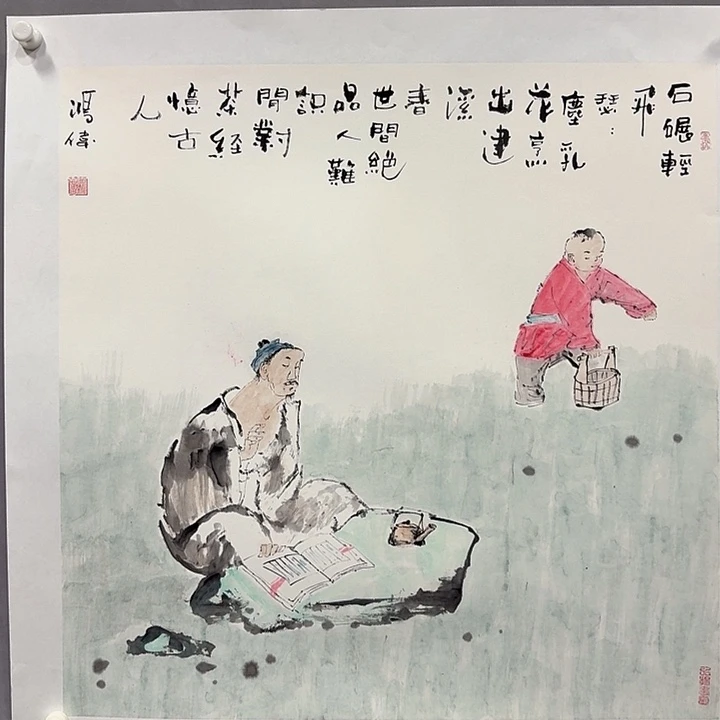 石碾輕
飛
瑟:
塵乳
花烹
出建
溪
春
世間絕
品人難
識
閒對
茶経
憶古
人